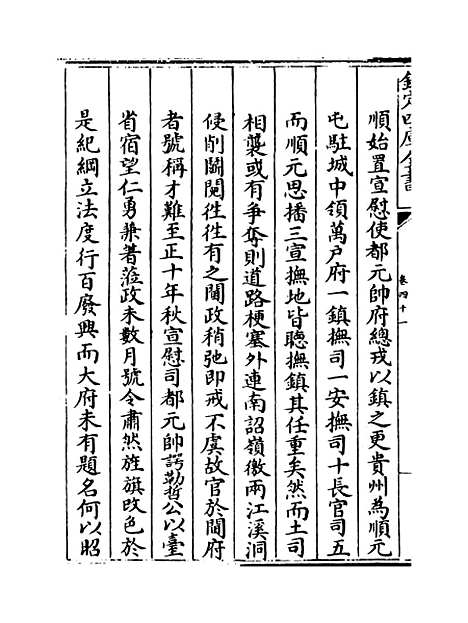 欽定四庫全書
卷四十一
順始置宣慰使都元帥府總戎以鎮之更貴州為順元
屯駐城中領萬戶府一鎮撫司一安撫司十長官司五
而順元思播三宣撫地皆聽撫鎮其任重矣然而土司
相襲或有爭奪則道路梗塞外連南詔嶺徼兩江溪洞
侵削鬬鬩徃徃有之閫政稍弛即戒不虞故官於閫府
者號稱才難至正十年秋宣慰司都元帥諤勒哲公以臺
省宿望仁勇兼著蒞政未數月號令肅然旌旗改色於
是紀綱立法度行百廢興而大府未有題名何以昭